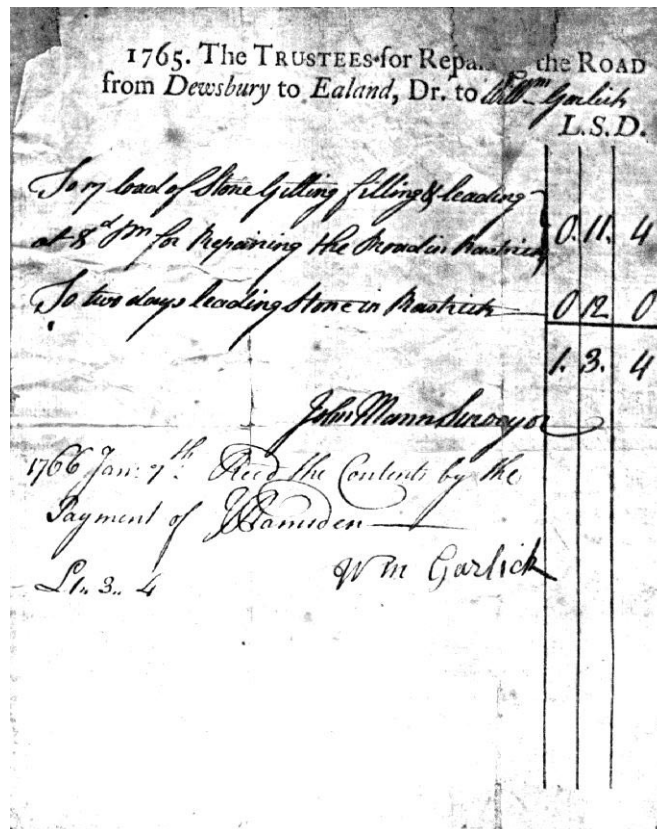 1765. The TRUSTEES for Repa the ROAD
from Dewsbury to Ealand, Dr. to Willm Garlick
L.S.D.
To 17 load of Stone Gitting filling & leading
at 8d for Repairing the Road in Rastrick 0. 11. 4
To two days leading Stone in Rastrick 0 12 0
1. 3. 4
John Mann Surveyor
1766 Jan: 7th Recd the Contents by the
Payment of J Ramsden
£1.. 3.. 4
Wm Garlick